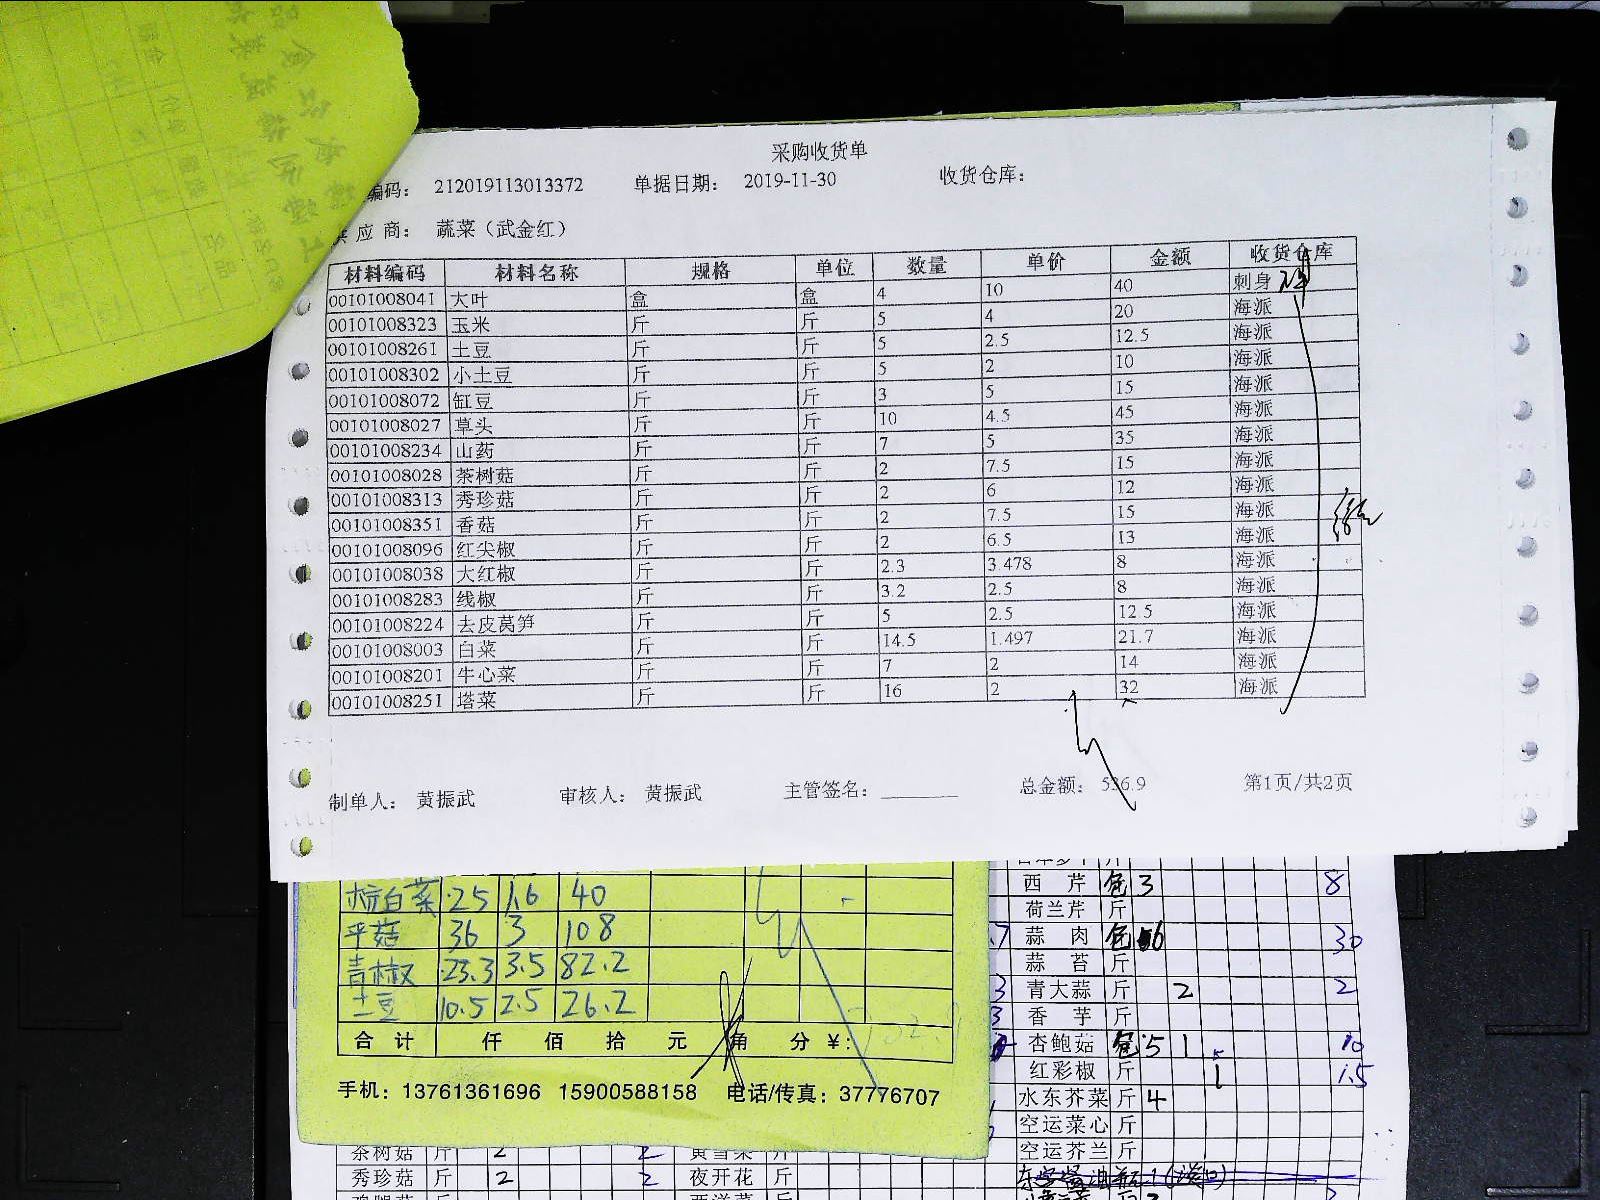 采购收货单
编码： 212019113013372 单据日期： 2019-11-30 收货仓库：
供应商： 蔬菜（武金红）
材料编码 材料名称 规格 单位 数量 单价 金额 收货仓库
00101008041 大叶 盒 盒 4 10 40 刺身
00101008323 玉米 斤 斤 5 4 20 海派
00101008261 土豆 斤 斤 5 2.5 12.5 海派
00101008302 小土豆 斤 斤 5 2 10 海派
00101008072 缸豆 斤 斤 3 5 15 海派
00101008027 草头 斤 斤 10 4.5 45 海派
00101008234 山药 斤 斤 7 5 35 海派
00101008028 茶树菇 斤 斤 2 7.5 15 海派
00101008313 秀珍菇 斤 斤 2 6 12 海派
00101008351 香菇 斤 斤 2 7.5 15 海派
00101008096 红尖椒 斤 斤 2 6.5 13 海派
00101008038 大红椒 斤 斤 2.3 3.478 8 海派
00101008283 线椒 斤 斤 3.2 2.5 8 海派
00101008224 去皮莴笋 斤 斤 5 2.5 12.5 海派
00101008003 白菜 斤 斤 14.5 1.497 21.7 海派
00101008201 牛心菜 斤 斤 7 2 14 海派
00101008251 塔菜 斤 斤 16 2 32 海派
制单人： 黄振武 审核人： 黄振武 主管签名： 总金额： 536.9 第1页/共2页
白菜 25 1.6 40
平菇 36 3 108
青椒 23.3 3.5 82.2
土豆 10.5 2.5 26.2
合计 仟 佰 拾 元 角 分 ¥：
手机：13761361696 15900588158 电话/传真：37776707
西芹 包 3 8
荷兰芹 斤
蒜肉 包 6 30
蒜苔 斤
青大蒜 斤 2 2
香芋 斤
杏鲍菇 包 5 1 10
红彩椒 斤 1 1.5
水东芥菜 斤 4
空运菜心 斤
空运芥兰 斤
茶树菇 斤 2 2
秀珍菇 斤 2 2 夜开花 斤